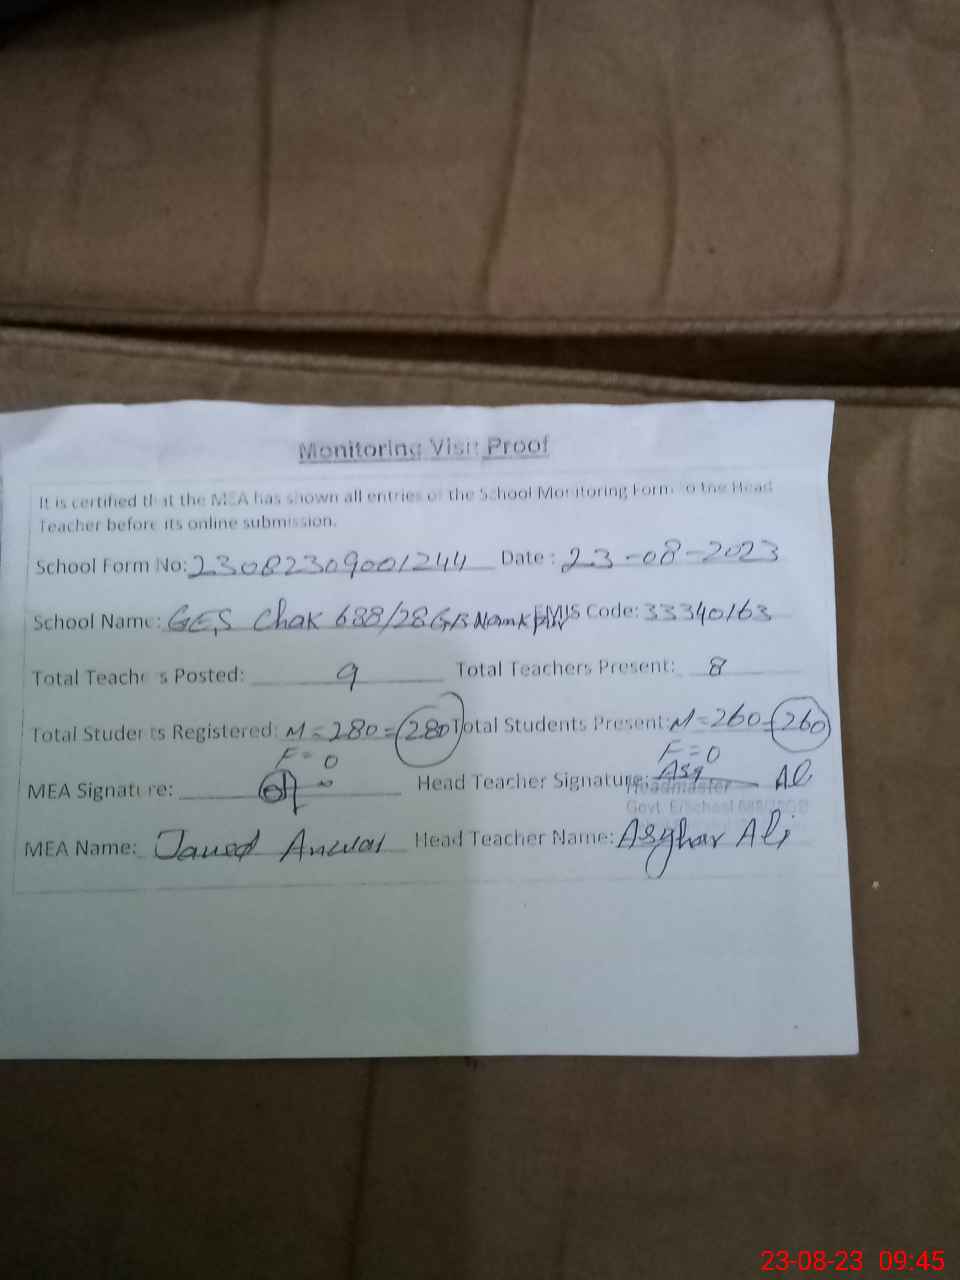 Monitoring Visit Proof
It is certified that the MEA has shown all entries of the School Monitoring Form to the Head
Teacher before its online submission.
School Form No: 23082309001244 Date : 23-08-2023
School Name: GES Chak 688/28 GB EMIS Code: 33340163
Total Teachers Posted: 9 Total Teachers Present: 8
Total Students Registered: M=280=280 Total Students Present: M=260=260
F=0 F=0
MEA Signature: Head Teacher Signature: Asg Ali
Headmaster
Govt. E/School
MEA Name: Javed Anwar Head Teacher Name: Asghar Ali
23-08-23 09:45